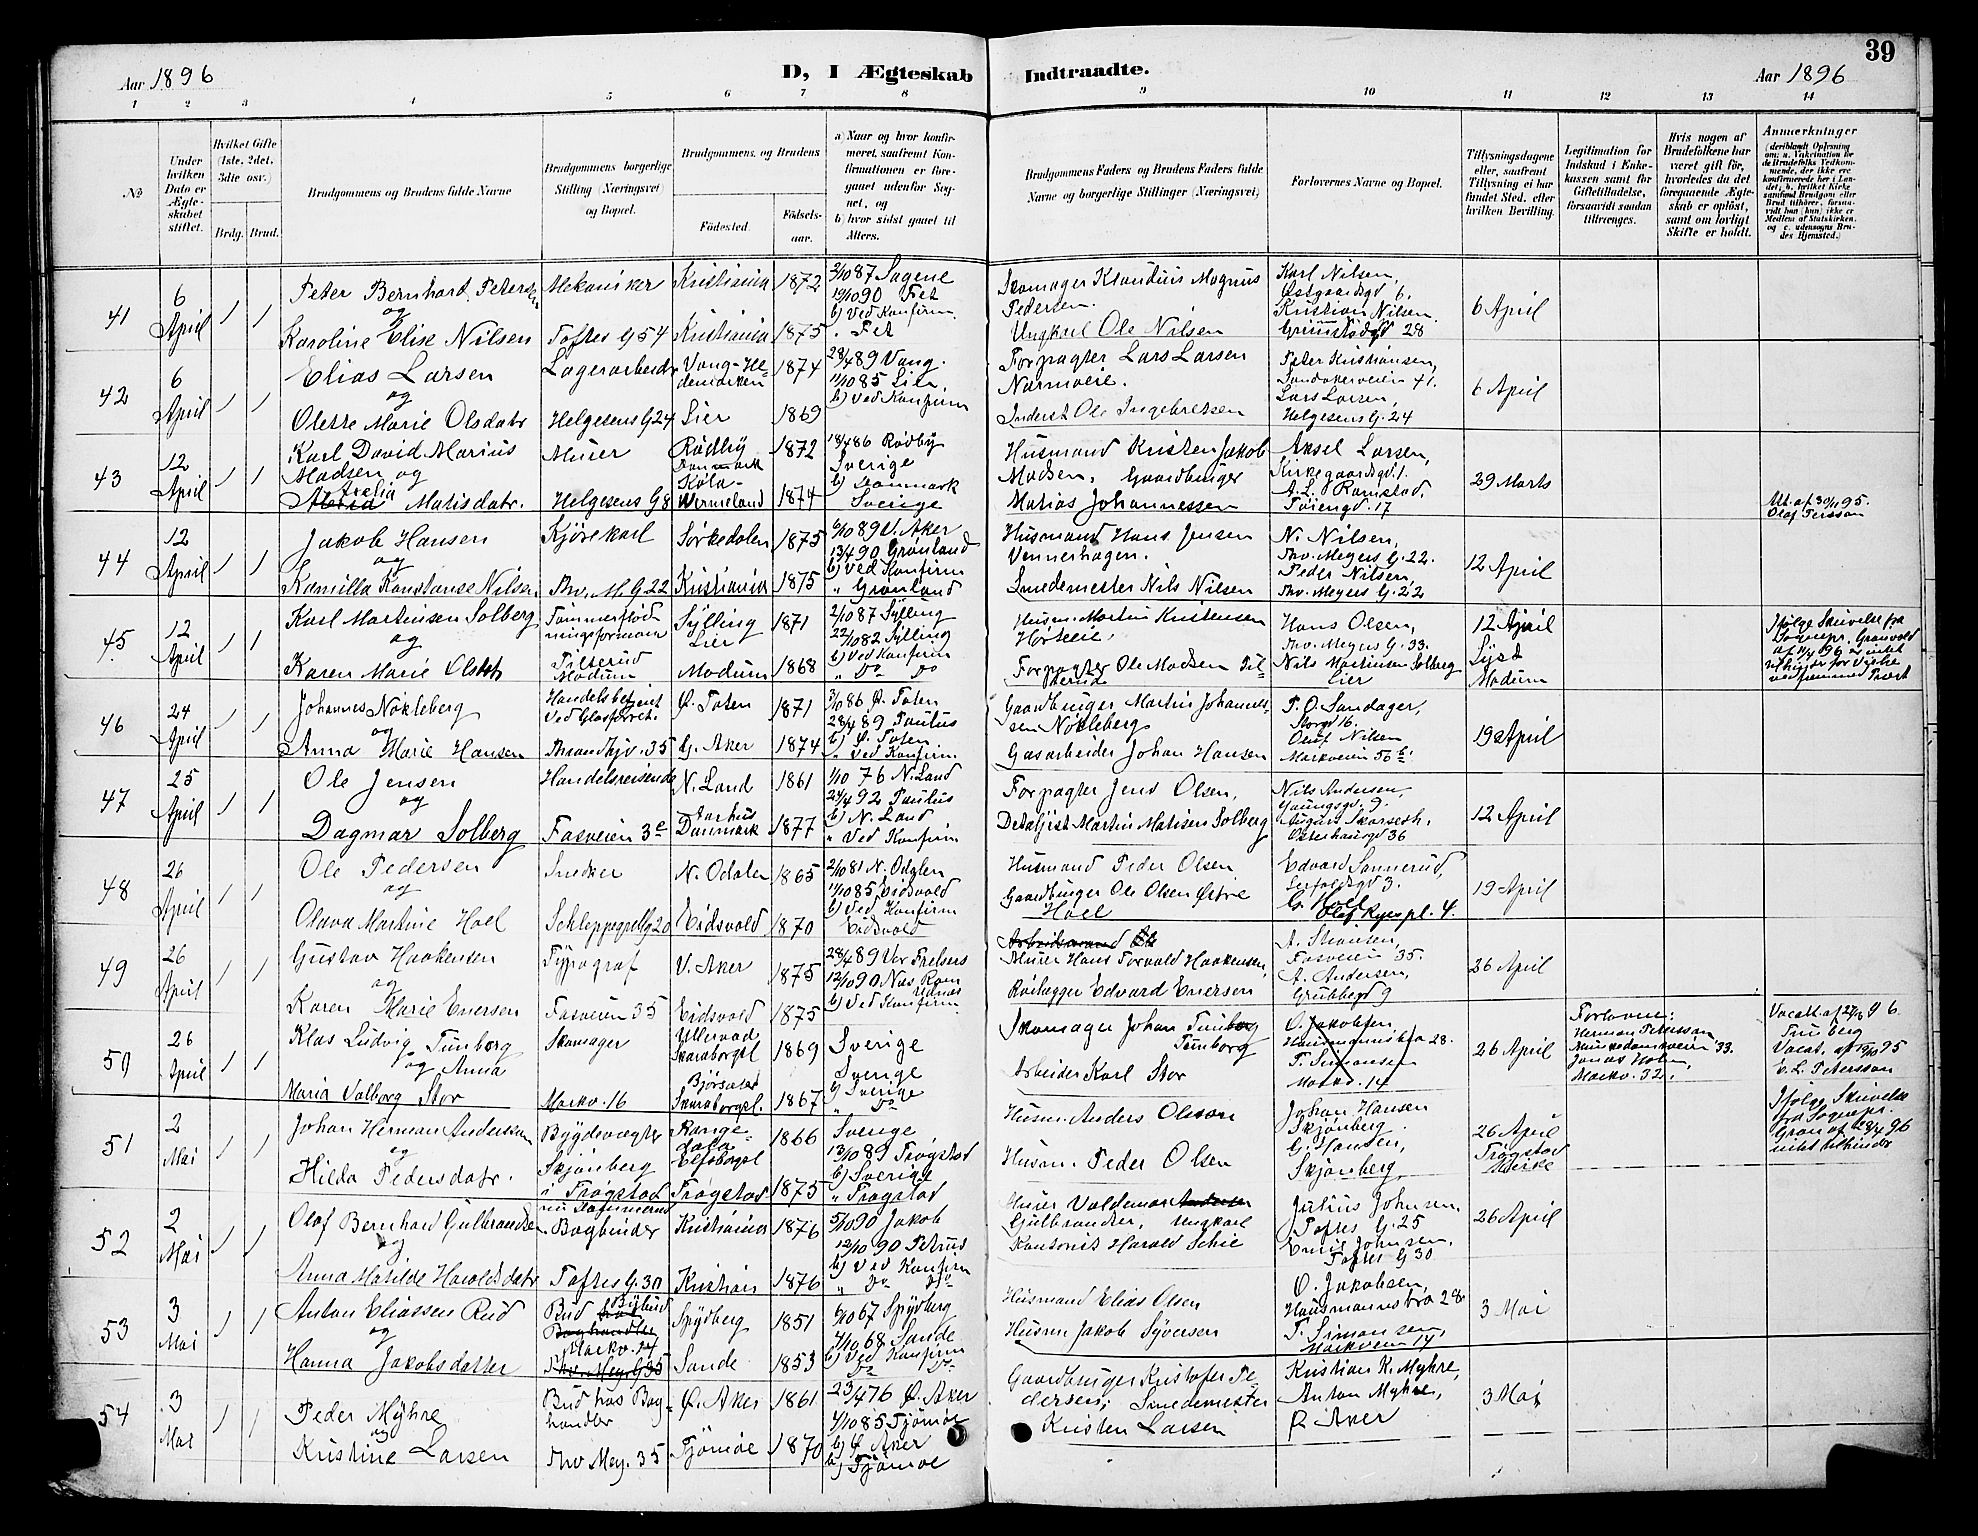 39
Aar 1896
D, I Ægteskab Indtraadte.
Aar 1896
1 2 3 4 5 6 7 8 9 10 11 12 13 14
No
Under hvilken Dato er Ægteskabet stiftet.
Hvilket Gifte (1ste, 2det, 3die osv.)
Brdg. Brud.
Brudgommens og Brudens fulde Navne
Brudgommens borgerlige Stilling (Næringsvei) og Bopæl.
Brudgommens og Brudens
Fødested. Fødselsaar.
a) Naar og hvor konfirmeret, saafremt Konfirmationen er foregaaet udenfor Sognet, og
b) hvor sidst gaaet til Alters.
Brudgommens Faders og Brudens Faders fulde Navne og borgerlige Stillinger (Næringsvei)
Forlovernes Navne og Bopæl.
Tillysningsdagene eller, saafremt Tillysning ei har fundet Sted, efter hvilken Bevilling.
Legitimation for Indskud i Enkekassen samt for Giftetilladelse, forsaavidt saadan tiltrænges.
Hvis nogen af Brudefolkene har været gift før, hvorledes da det foregaaende Ægteskab er opløst, samt om lovligt Skifte er holdt.
Anmerkninger
(deriblandt Oplysning om: a. Vakcination for de Brudefolks Vedkommende, der ikke ere konfirmerede her i Landet; b. hvilket Kirkesamfund Brudgom eller Brud tilhører, forsaavidt han (hun) ikke er Medlem af Statskirken, og c. udensogns Brudes Hjemsted.)
41 6 April 1 1
Peter Bernhard Petersen Mekaniker Kristiania 1872 2/10 87 Sagene
og
Karoline Elise Nilsen Toftes G 54 Kristiania 1875 12/10 90 Fet
b) Ved Konfirm.
" Fet
Skomager Klaudius Magnus Pedersen.
Ungkarl Ole Nilsen
Karl Nilsen, Østgaardsgd 6.
Kristian Nilsen. Grimstadgd 28
6 April
42 6 April 1 1
Elias Larsen Lagerarbeider Vang-Hedemarken 1874 28/4 89 Vang.
og
Olette Marie Olsdatr Helgesens G 24 Lier 1869 11/10 85 Lier.
b) Ved Konfirm
Forpagter Lars Larsen
Inderst Ole Ingebretsen
Peter Kristiansen, Sandakerveien 41.
Lars Larsen, Helgesens G. 24
6 April
43 12 April 1 1
Karl David Marius Madsen og Murer Rødby Danmark 1872 18/4 86 Rødby
Matisdatr. Helgesens G 8 Köla-Wermeland 1874 Sverige
b) Danmark
Sverige
Husmand Kristen Jakob Madsen, Gaardbruger
Matias Johannessen
Aksel Larsen, Kirkegaardsgd. 1.
A. L. Ramstad, Tøiengd. 17
29 Marts
Att. af 30/11 95. Olaf Persson
44 12 April 1 1
Jakob Hansen Kjørekarl Sørkedalen 1875 6/10 89 V. Aker
og
Kamilla Konstanse Nilsen Thv. M. G 22 Kristiania 1875 13/4 90 Grønland
b) Ved Konfirm
" Grønland
Husmand Hans Jensen Vennerhagen.
Smedemester Nils Nilsen
N. Nilsen, Thv. Meyers G. 22.
Peder Nilsen, Thv. Meyers G. 22
12 April
45 12 April 1 1
Karl Martinsen Solberg Sylling Lier 1871 2/10 87 Sylling
og
Karen Marie Modum Modum 1868 22/10 82 Sylling
b) Ved Konfirm
" Do Do
Husm. Martin Kristensen
Forpagter Ole Madsen
Hans Olsen, Thv. Meyers G. 33.
Nils Martinsen Solberg Lier
12 April
Lyst Modum
Ifølge Skrivelse fra Sognepr. Grønvold
46 24 April 1 1
Johannes Nøkleberg Handelsbetjent Ø. Toten 1871 3/10 86 Ø. Toten
og
Anna Marie Hansen 35 G. Aker 1874 28/4 89 Paulus
b) Ø. Toten
" Ved Konfirm.
Gaardbruger Martin Johannessen Nøkleberg
Gasarbeider Johan Hansen
P. O. Sandager, Storgd 16.
Oluf Nilsen Markveien 56 b.
19 April
47 25 April 1 1
Ole Jensen Handelsreisende N. Land 1861 1/10 76 N. Land
og
Dagmar Solberg Fosveien 3 c Aarhus Danmark 1877 24/4 92 Paulus
b) N. Land
" Ved Konfirm
Forpagter Jens Olsen,
Detaljist Martin Matisen Solberg
Nils Andersen, Youngsgd. 9.
Osterhausgd 36
12 April
48 26 April 1 1
Ole Pedersen Snedker N. Odalen 1865 2/10 81 N. Odalen
og
Olava Martine Hoel Schleppegrellsg 20 Eidsvold 1870 11/10 85 Eidsvold
b) Ved Konfirm
Eidsvold
Husmand Peder Olsen
Gaardbruger Ole Olsen Østre Hoel
Edvard Sannerud, 3.
G. Hoel Olaf Ryes pl. 4.
19 April
49 26 April 1 1
Gustav Haakensen Typograf V. Aker 1875 28/4 89 Vor Frelsers
og
Karen Marie Enersen Fosveien 35 Eidsvold 1875 12/10 90 Næs Romerikes
b) Ved Konfirm
Arbeidsmand Ole
Murer Hans Torvald Haakensen,
Rørlægger Edvard Enersen
A. Svensen, Fosveien 35.
A. Andersen, Grubbegd 9
26 April
50 26 April 1 1
Klas Ludvig Tunborg Skomager Skaraborgsl 1869 Sverige
og Anna
Maria Valborg Stor Markv. 16 Skaraborgsl. 1867 Sverige
b) Sverige
" Do
Skomager Johan Tunborg
Arbeider Karl Stor
O. Jakobsen, Hausmannsbro 28.
T. Simonsen Markv. 14
26 April
Forlovere: Herman Petersson, Munkedamsveien 33.
Jonas Holm, Markv. 32.
Vacatt. af 27/2 96. Tunberg
Vacat. af 12/10 95 C. L. Petersson
51 2 Mai 1 1
Johan Herman Andersson Bygdevægter Elfsborgsl 1866 Sverige
og
Hilda Pedersdatr. Skjønberg i Trøgstad Trøgstad 1875 13/10 89 Trøgstad
b) Sverige
" Trøgstad
Husm. Anders Olsson
Husm. Peder Olsen
Johan Hansen Skjønberg.
G. Hansen, Skjønberg,
26 April
Trøgstad Kirke
Ifølge Skrivelse fra Sognepr. Gran af 28/4 96 intet tilhinder
52 2 Mai 1 1
Olaf Bernhard Gulbrandsen Bogbinder Kristiania 1876 5/10 90 Jakob
og
Anna Matilde Haroldsdatr Toftes G. 30 Kristian 1876 12/10 90 Petrus
b) Ved Konfirm
" Do Do
Murer Valdemar Andersen Gulbrandsen, Ungkarl
Kontorist Harald Schie
Julius Johnsen. Toftes G. 25
Emil Johnsen. Toftes G 30
26 April
53 3 Mai 1 1
Anton Eliassen Rud Bud Bybud Spydberg 1851 6/10 67 Spydberg
og Markv. 24
Hanna Jakobsdatter Thv. Mey. G 35 Sande 1853 4/10 68 Sande
b) Ved Konfirm
Do Do
Husmand Elias Olsen
Husm Jakob Syversen
O. Jakobsen, Hausmannsbro 28.
T. Simonsen, Markveien 14
3 Mai
54 3 Mai 1 1
Peder Myhre Bud hos Boghandler Ø. Aker 1861 23/4 76 Ø. Aker
og
Kristine Larsen Thv Mey. 35 Tjømøe 1870 4/10 85 Tjømøe
b) Ø. Aker
b) Tjømøe
Gaardbruger Kristofer Pedersen; Smedemester
Kristen Larsen
Kristian K. Myhre,
Anton Myhre,
Ø Aker
3 Mai